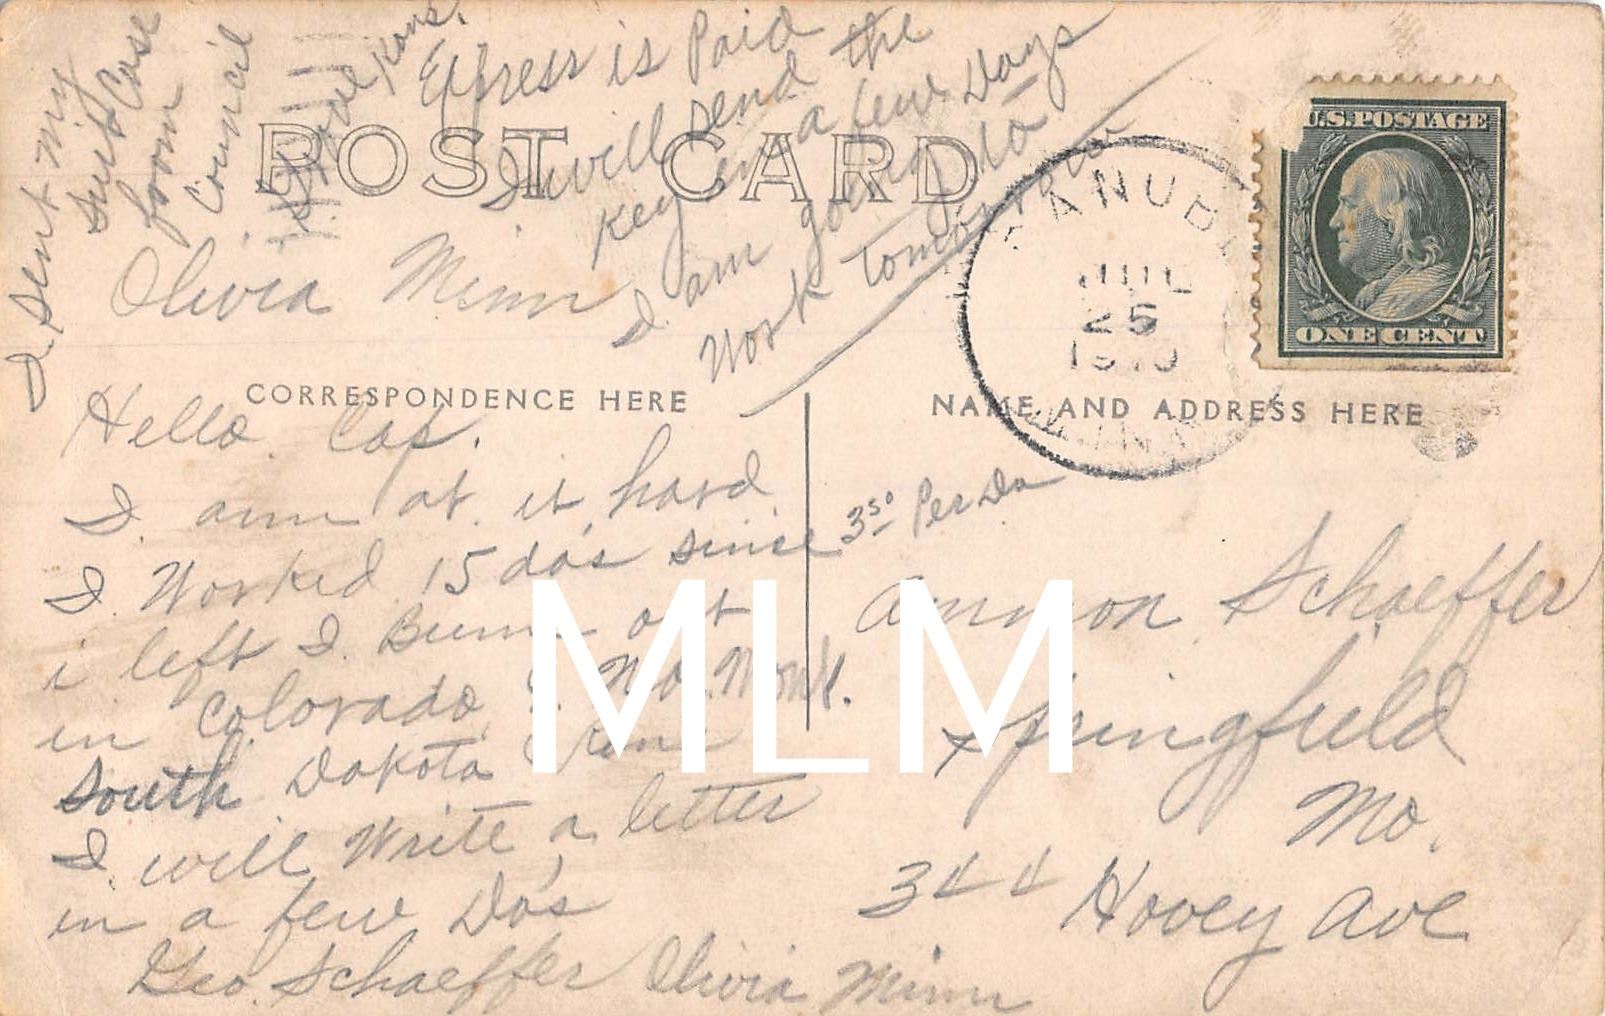 I sent my
Suit Case
from
Council
Grove Kans.
Express is Paid
I will send the
Key in a few Days
I am going to
Work tomorrow
POST CARD
U.S. POSTAGE
ONE CENT
DANUBE
JUL
25
MINN.
Olivia Minn
CORRESPONDENCE HERE
NAME AND ADDRESS HERE
Hello Cap.
I am at it hard
I Worked 15 da's since
3 50 Per Da
i left I Bum out
in Colorado & No. Work.
South Dakota & Kans
I will Write a letter
in a few Da's
Geo. Schaeffer Olivia Minn
Ammon Schaeffer
Springfield
Mo.
344 Hovey Ave
MLM